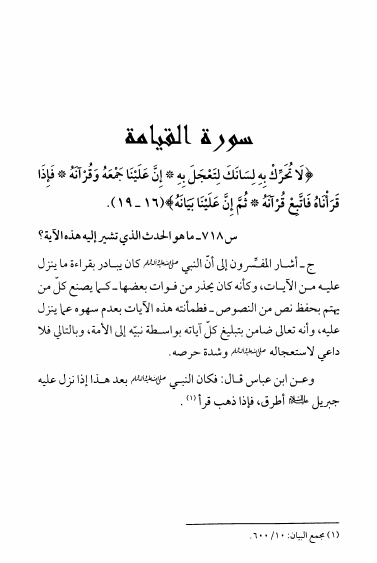 سورة القيامة
﴿لَا تُحَرِّكْ بِهِ لِسَانَكَ لِتَعْجَلَ بِهِ * إِنَّ عَلَيْنَا جَمْعَهُ وَقُرْآنَهُ * فَإِذَا
قَرَأْنَاهُ فَاتَّبِعْ قُرْآنَهُ * ثُمَّ إِنَّ عَلَيْنَا بَيَانَهُ﴾ (١٦ ـ ١٩).
س ٧١٨ ـ ما هو الحدث الذي تشير إليه هذه الآية؟
ج ـ أشار المفسِّرون إلى أنّ النبي كان يبادر بقراءة ما ينزل
عليه من الآيات، وكأنه كان يحذر من فوات بعضها ـ كما يصنع كلّ من
يهتم بحفظ نص من النصوص ـ فطمأنته هذه الآيات بعدم سهوه عما ينزل
عليه، وأنه تعالى ضامن بتبليغ كلّ آياته بواسطة نبيّه إلى الأمة، وبالتالي فلا
داعي لاستعجاله وشدة حرصه.
وعن ابن عباس قال: فكان النبي بعد هذا إذا نزل عليه
جبريل أطرق، فإذا ذهب قرأ (١).
(١) مجمع البيان: ١٠/ ٦٠٠.